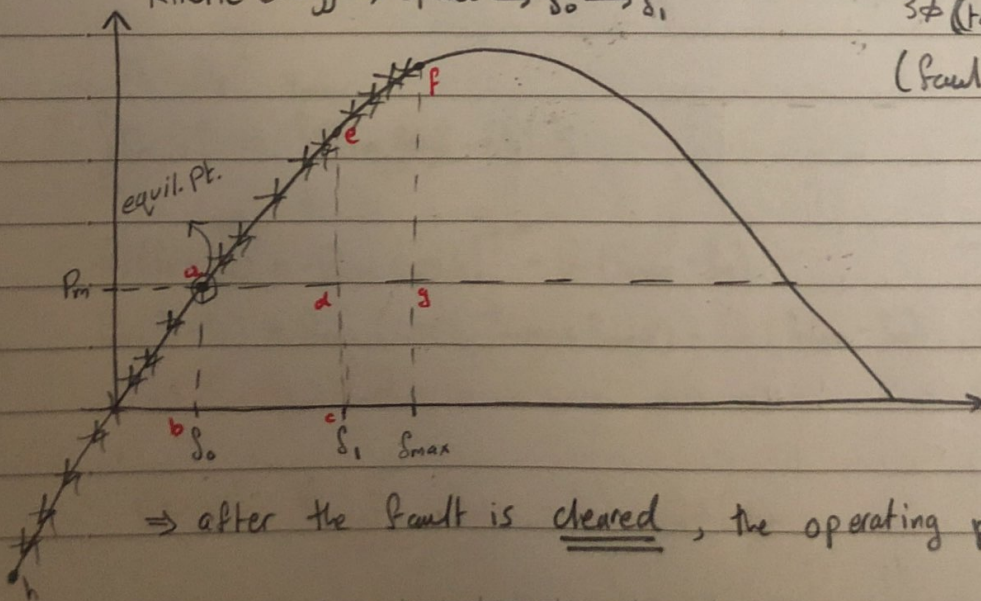 δ₀ δ₁
3Φ
f
e
equil. pt.
a
Pm
d
g
b
c
δ₀
δ₁
δmax
⇒ after the fault is cleared, the operating
h